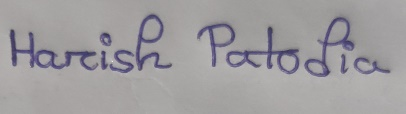 Harish Patodia